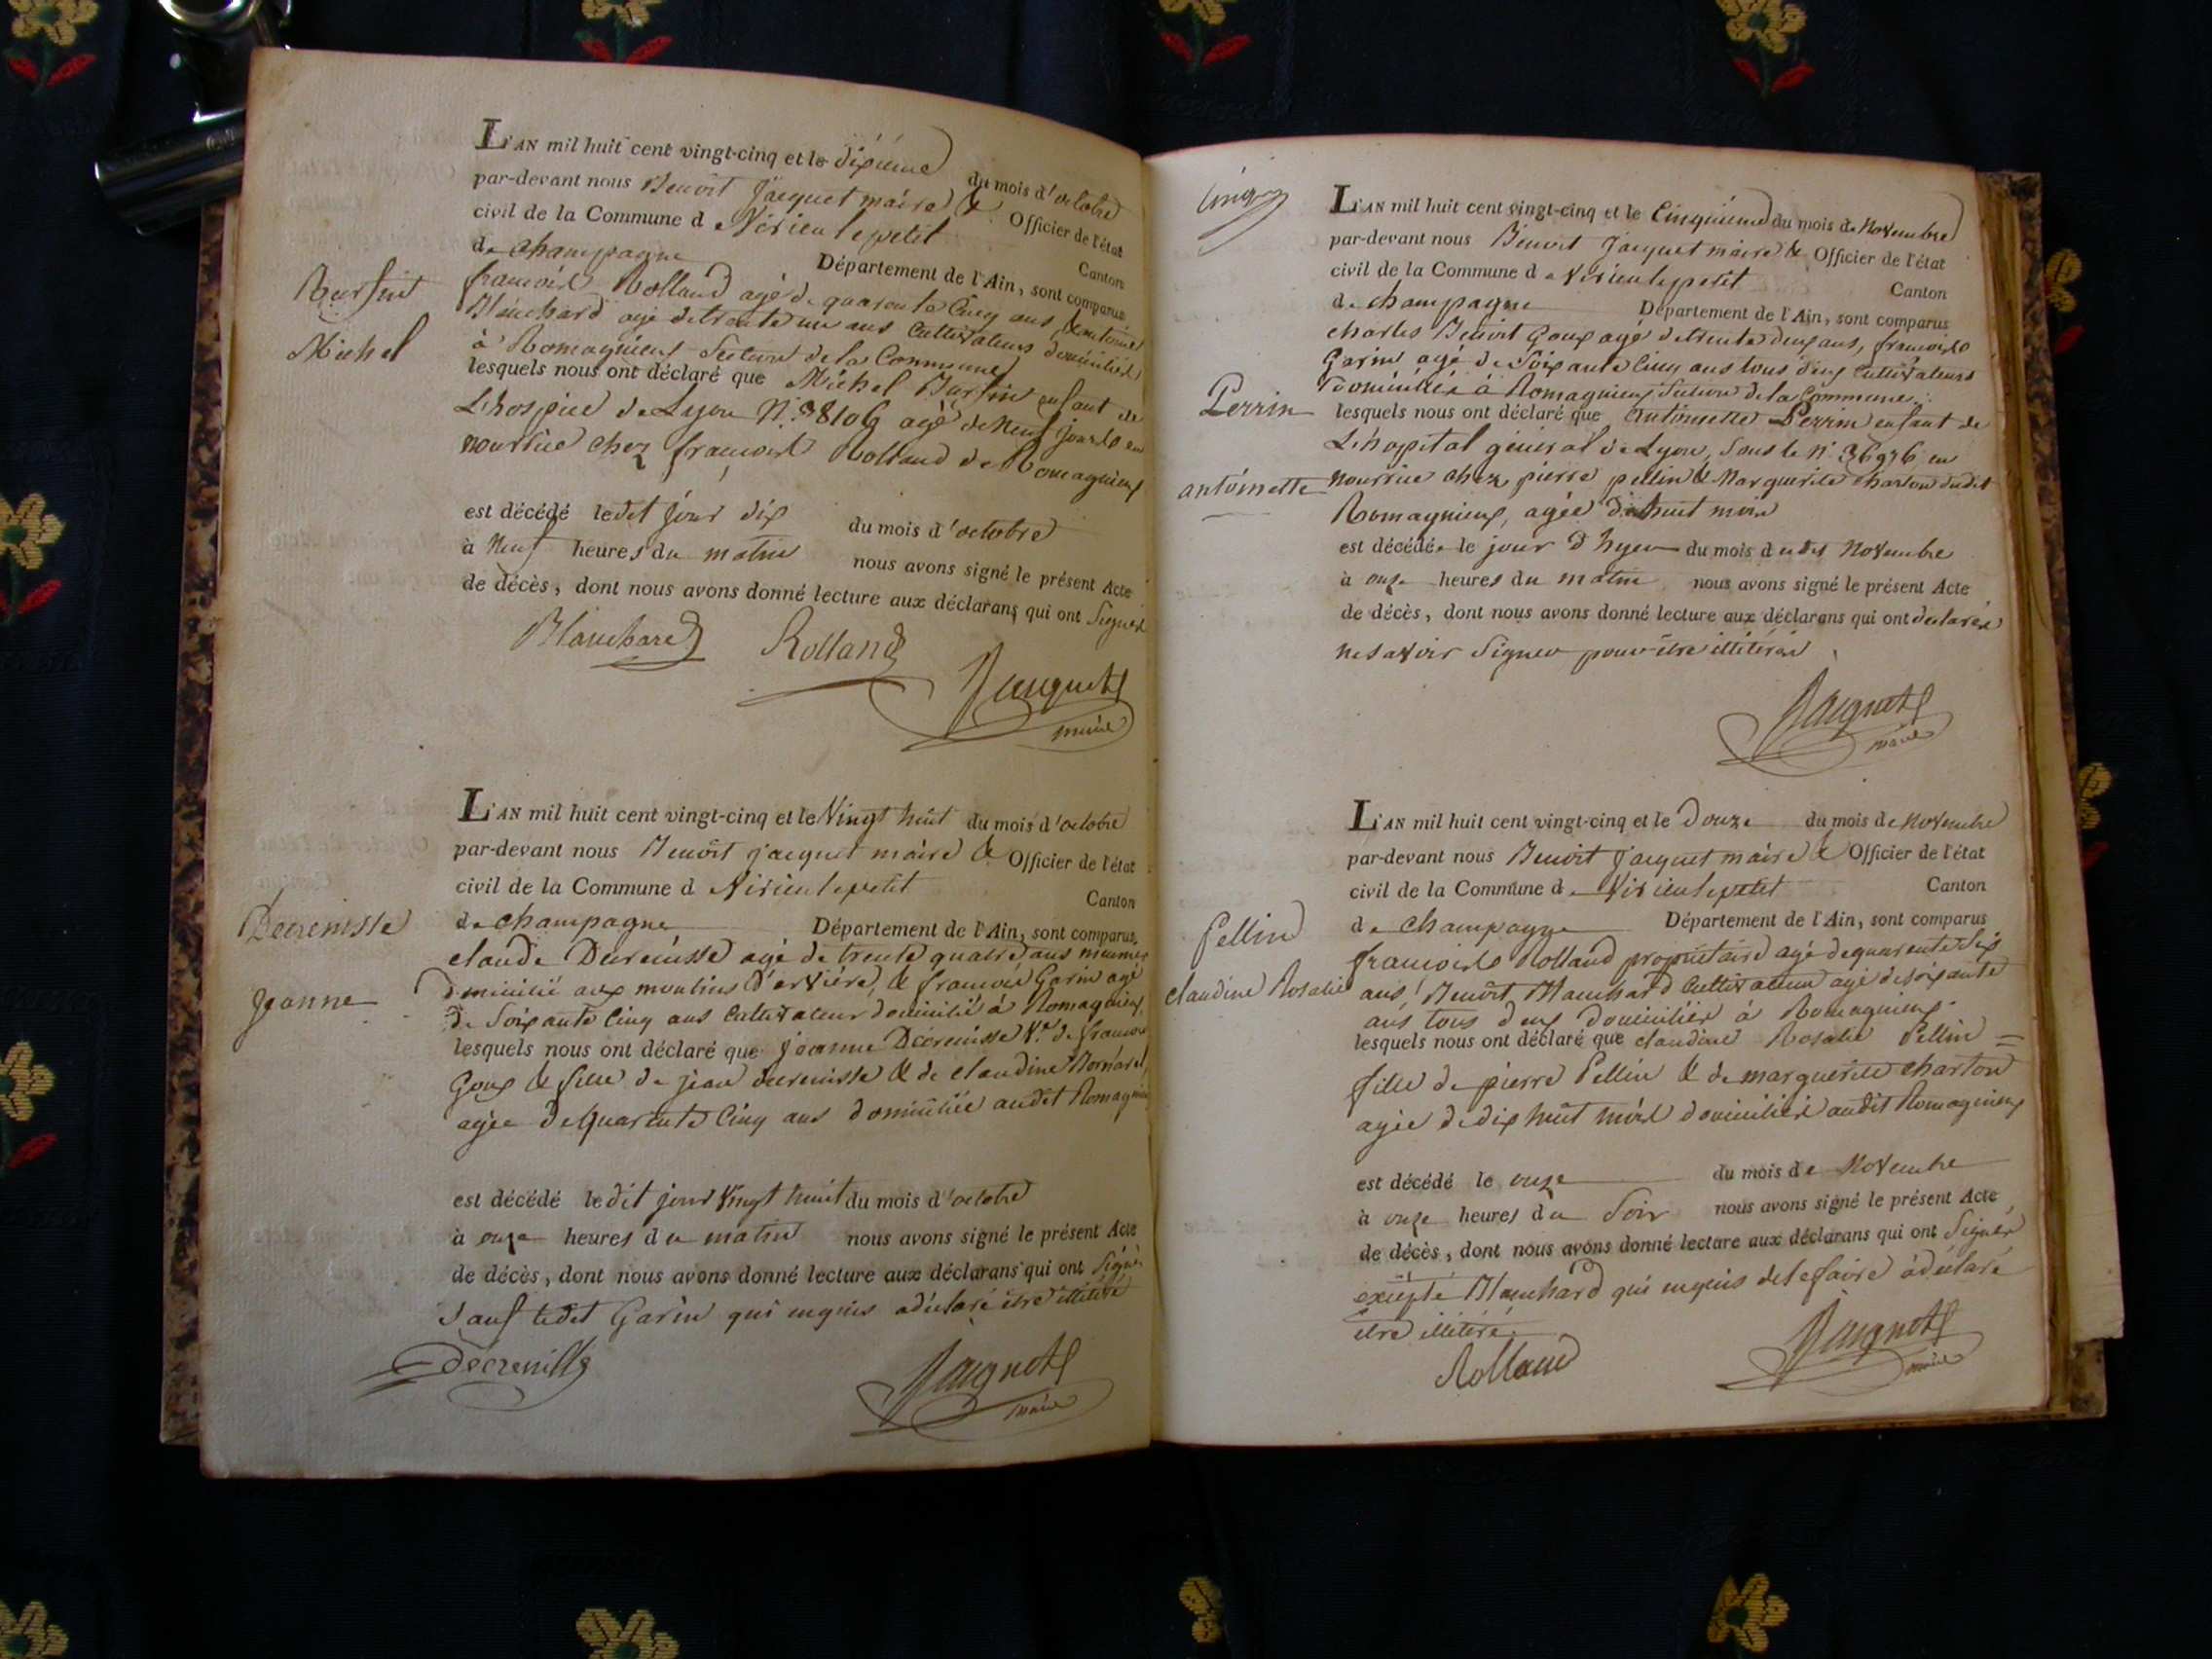 L'AN mil huit cent vingt-cinq et le dixieme du mois d'octobre
par-devant nous Benoit Jacquet maire & Officier de l'état
civil de la Commune de Virieu le petit Canton
de Champagne Département de l'Ain, sont comparus
françois Rolland agé de quarante cinq ans, & antoine
Blanchard agé de trente un ans Cultivateurs domiciliés
à Romagnieux Section de la Commune
lesquels nous ont déclaré que Michel enfant de
L'hospice de Lyon N.° 38106 agé de neuf jours en
nourrice chez françois Rolland de Romagnieux
est décédé ledit jour dix du mois d'octobre
à Neuf heures du matin nous avons signé le présent Acte
de décès, dont nous avons donné lecture aux déclarans qui ont Signés
Blanchard Rolland
Jacquet
maire
Michel
L'AN mil huit cent vingt-cinq et le Vingt huit du mois d'octobre
par-devant nous Benoit jacquet maire & Officier de l'état
civil de la Commune de Virieu le petit Canton
de Champagne Département de l'Ain, sont comparus
claude Decrenisse agé de trente quatre ans meunier
domicilié aux moulins d'arvière, & françois Garin agé
de Soixante Cinq ans Cultivateur domicilié à Romagnieux,
lesquels nous ont déclaré que jeanne Decrenisse V.e de francois
Goux & fille de jean decrenisse & de claudine Bornarel,
agée de quarante Cinq ans domiciliée audit Romagnieux
est décédé ledit jour Vingt huit du mois d'octobre
à onze heures du matin nous avons signé le présent Acte
de décès, dont nous avons donné lecture aux déclarans qui ont Signé
Sauf ledit Garin qui enquis a déclaré être illitéré
Decrenisse
Jacquet
maire
Decrenisse
Jeanne
Cinq
L'AN mil huit cent vingt-cinq et le Cinquieme du mois de Novembre
par-devant nous Benoit Jacquet maire & Officier de l'état
civil de la Commune de Virieu le petit Canton
de champagne Département de l'Ain, sont comparus
charles Benoit Goux agé de trente deux ans, francois
Garin agé de Soixante Cinq ans tous deux Cultivateurs
Domiciliés à Romagnieux Section de la Commune
lesquels nous ont déclaré que antoinette Perrin enfant de
L'hopital général de Lyon, Sous le N.° 36976 en
nourrice chez pierre pellin & Marguerite charton dudit
Romagnieux, agée dixhuit mois
est décédée le jour d'hyer du mois dudit Novembre
à onze heures du matin nous avons signé le présent Acte
de décès, dont nous avons donné lecture aux déclarans qui ont déclarés
ne savoir Signer pour être illitérés
Jacquet
maire
Perrin
antoinette
L'AN mil huit cent vingt-cinq et le Douze du mois de Novembre
par-devant nous Benoit Jacquet maire & Officier de l'état
civil de la Commune de Virieu le petit Canton
de Champagne Département de l'Ain, sont comparus
francois Rolland propriétaire agé de quarante Six
ans, Benoit Blanchard Cultivateur agé de soixante
ans tous deux domiciliés à Romagnieux
lesquels nous ont déclaré que claudine Rosalie Pellin =
fille de pierre Pellin & de marguerite charton
agée de dix huit mois domiciliés audit Romagnieux
est décédé le onze du mois de Novembre
à onze heures du Soir nous avons signé le présent Acte
de décès, dont nous avons donné lecture aux déclarans qui ont Signés
excepté Blanchard qui enquis de le faire a déclaré
etre illitéré
Rolland
Jacquet
maire
Pellin
claudine Rosalie